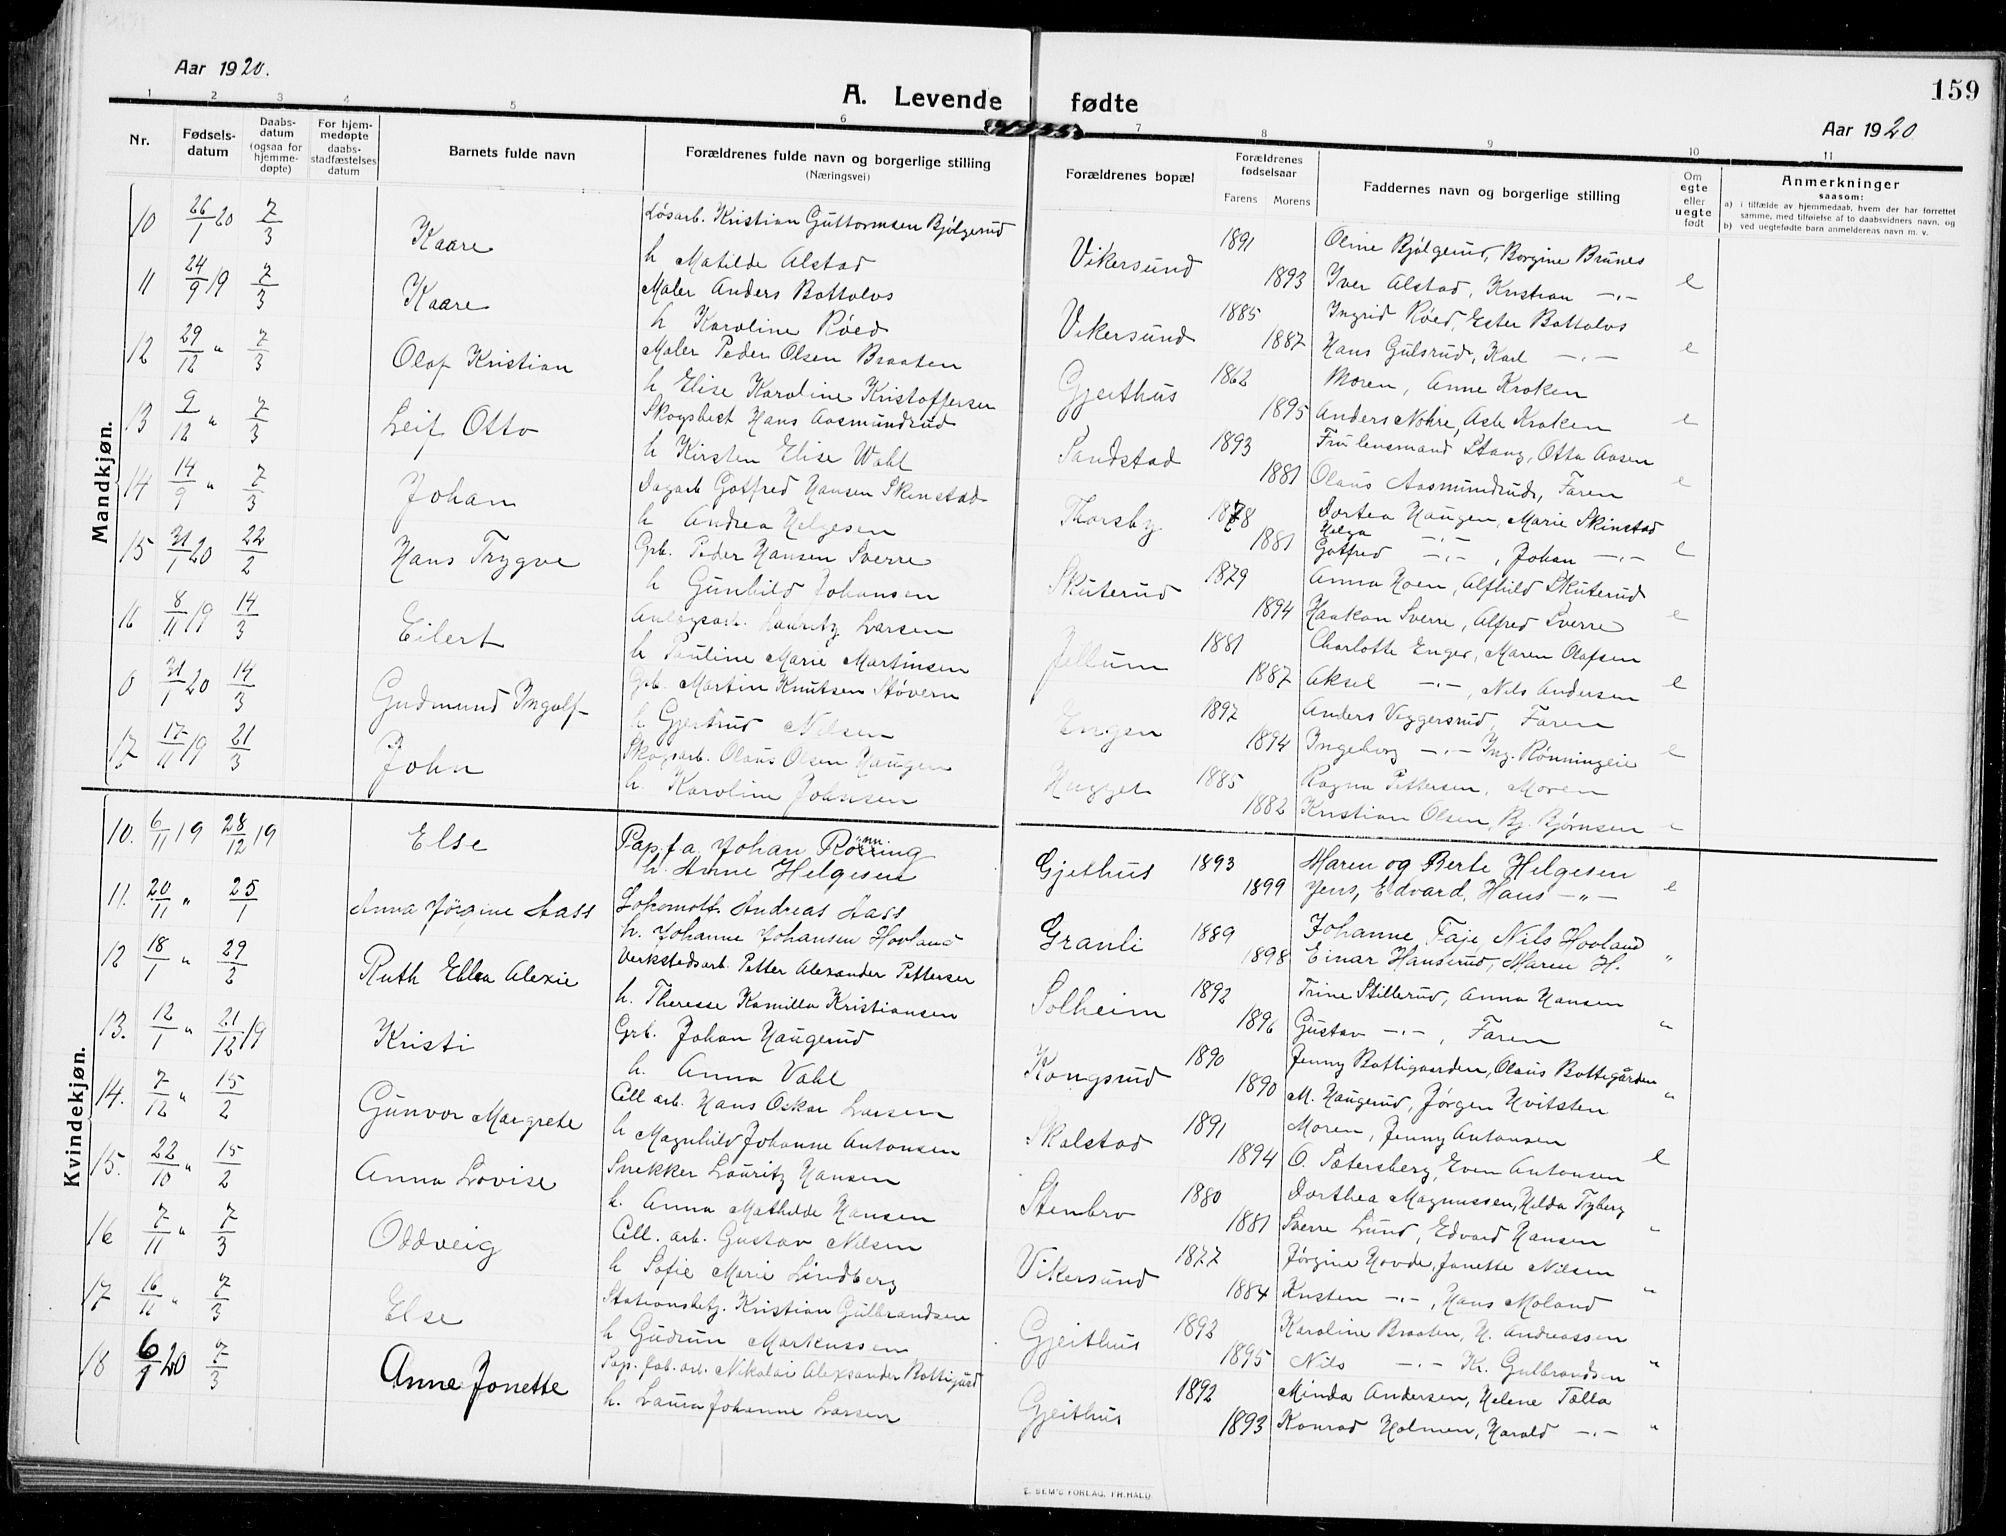 Aar 1920.
A. Levende fødte
159
Aar 1920
1 2 3 4 5 6 7 8 9 10 11
Nr.
Fødsels-
datum
Daabs-
datum
(ogsaa for
hjemme-
døpte)
For hjem-
medøpte
daabs-
stadfæstelses
datum
Barnets fulde navn
Forældrenes fulde navn og borgerlige stilling
(Næringsvei)
Forældrenes bopæl
Forældrenes
fødselsaar
Farens Morens
Faddernes navn og borgerlige stilling
Om
egte
eller
uegte
født
Anmerkninger
saasom:
a) i tilfælde av hjemmedaab, hvem der har forrettet
samme, med tilføielse af to daabsvidners navn, og
b) ved uegtefødte barn anmelderens navn m. v.
Mandkjøn.
10 26/1 20 7/3 Kaare Løsarb. Kristian Guttormsen Bjølgerud Vikersund 1891 Oline Bjølgerud, Borgine Brunes
h Matilde Alstad 1893 Iver Alstad, Kristian -"- e
11 24/9 19 7/3 Kaare Maler Anders Bottolvs Vikersund 1885 Ingrid Røed, Ester Bottolvs
h Karoline Røed 1887 Hans Gulsrud, Karl -"- e
12 29/12 " 7/3 Olaf Kristian Maler Peder Olsen Braaten Gjeithus 1862 Moren, Anne Kroken
h Elise Karoline Kristoffersen 1895 Anders Nohre, Asle Kroken e
13 9/12 " 7/3 Leif Otto Skogsbest Hans Aasmundrud Sandstad 1893 Fru lensmand Stang, Otto Aasen
h Kirsten Elise Wahl 1881 Olaus Aasmundrud, Faren e
14 14/9 " 7/3 Johan Dagarb Gotfred Hansen Skinstad Thorsby 1878 Dortea Haugen, Marie Skinstad
Helga -"-
h Andrea Helgesen 1881 Gotfred -"-, Johan -"- e
15 31/1 20 22/2 Hans Trygve Grb. Peder Hansen Sverre Skuterud 1879 Anna Hoen, Alfhild Skuterud
h Gunhild Johansen 1894 Haakon Sverre, Alfred Sverre e
16 8/11 19 14/3 Eilert Anlegsarb. Lauritz Larsen Jellum 1881 Charlotte Enger, Maren Olafsen
h Pauline Marie Martinsen 1887 Aksel -"-, Nils Andersen e
0 31/1 20 14/3 Gudmund Ingolf Grb. Martin Knutsen Støvern Engen 1897 Anders Veggersrud, Faren
h Gjertrud Nilsen 1894 Ingeborg -"- Ing. Rønningeie e
17. 17/11 19 21/3 John Skogsarb. Olaus Olsen Haugen 1885 Ragna Pettersen, Moren
h. Karoline Johnsen 1882 Kristian Olsen, Bj. Bjørnsen e
Kvindekjøn.
10. 6/11 19 28/12 19 Else Pap.fa. Johan Gjethus 1893 Maren og Berte Helgesen
h. Anne Helgesen 1899 Jens, Edvard, Hans -"- e
11. 20/11 " 25/1 Anna Jørgine Aass Lokomotf. Andreas Aass Granli 1889 Johanne Faje, Nils Hovland
h. Johanne Johansen Hovland 1898 Einar Hanserud, Maren H. "
12 18/1 " 29/2 Ruth Ebba Alexie Verkstedsarb. Petter Alexander Pettersen Solheim 1892 Trine Stillerud, Anna Hansen
h. Therese Kamilla Kristiansen 1896 Gustav -"-, Faren "
13. 12/1 " 21/12 19 Kristi Grb. Johan Haugerud Kongsrud 1890 Jenny Bottigaarden, Olaus Bottegården
h. Anna Vahl 1890 M. Haugerud, Jørgen Hvitsten "
14. 7/12 " 15/2 Gunvor Margrete Cell arb. Hans Oskar Larsen Skalstad 1891 Moren, Jenny Antonsen
h Magnhild Johanne Antonsen 1894 O. Petersberg, Even Antonsen e
15. 22/10 " 15/2 Anna Lovise Snekker Lauritz Hansen Stenbro 1880 Dorthea Magnussen, Hilda Tyberg
h. Anna Mathilde Hansen 1881 Sverre Lund, Edvard Hansen "
16 7/11 " 7/3 Oddveig Cell. arb. Gustav Nilsen Vikersund 1877 Jørgine Hovde, Janette Nilsen
h Sofie Marie Lindberg 1884 Kristen -"-, Hans Moland "
17 16/11 " 7/3 Else Stationsbetj. Kristian Gulbrandsen Gjeithus 1892 Karoline Braaten, H. Andreassen
h Gudrun Markussen 1895 Nils -"- Kr. Gulbrandsen "
18 6/1 20 7/3 Anne Jonette Pap. fab. arb. Nikolai Alexsander Bottigård Gjeithus 1892 Minda Andersen, Helene Tolla
h. Laura Johanne Larsen 1893 Konrad Holmen, Harald -"- "
E. SEM'S FORLAG, FR.HALD